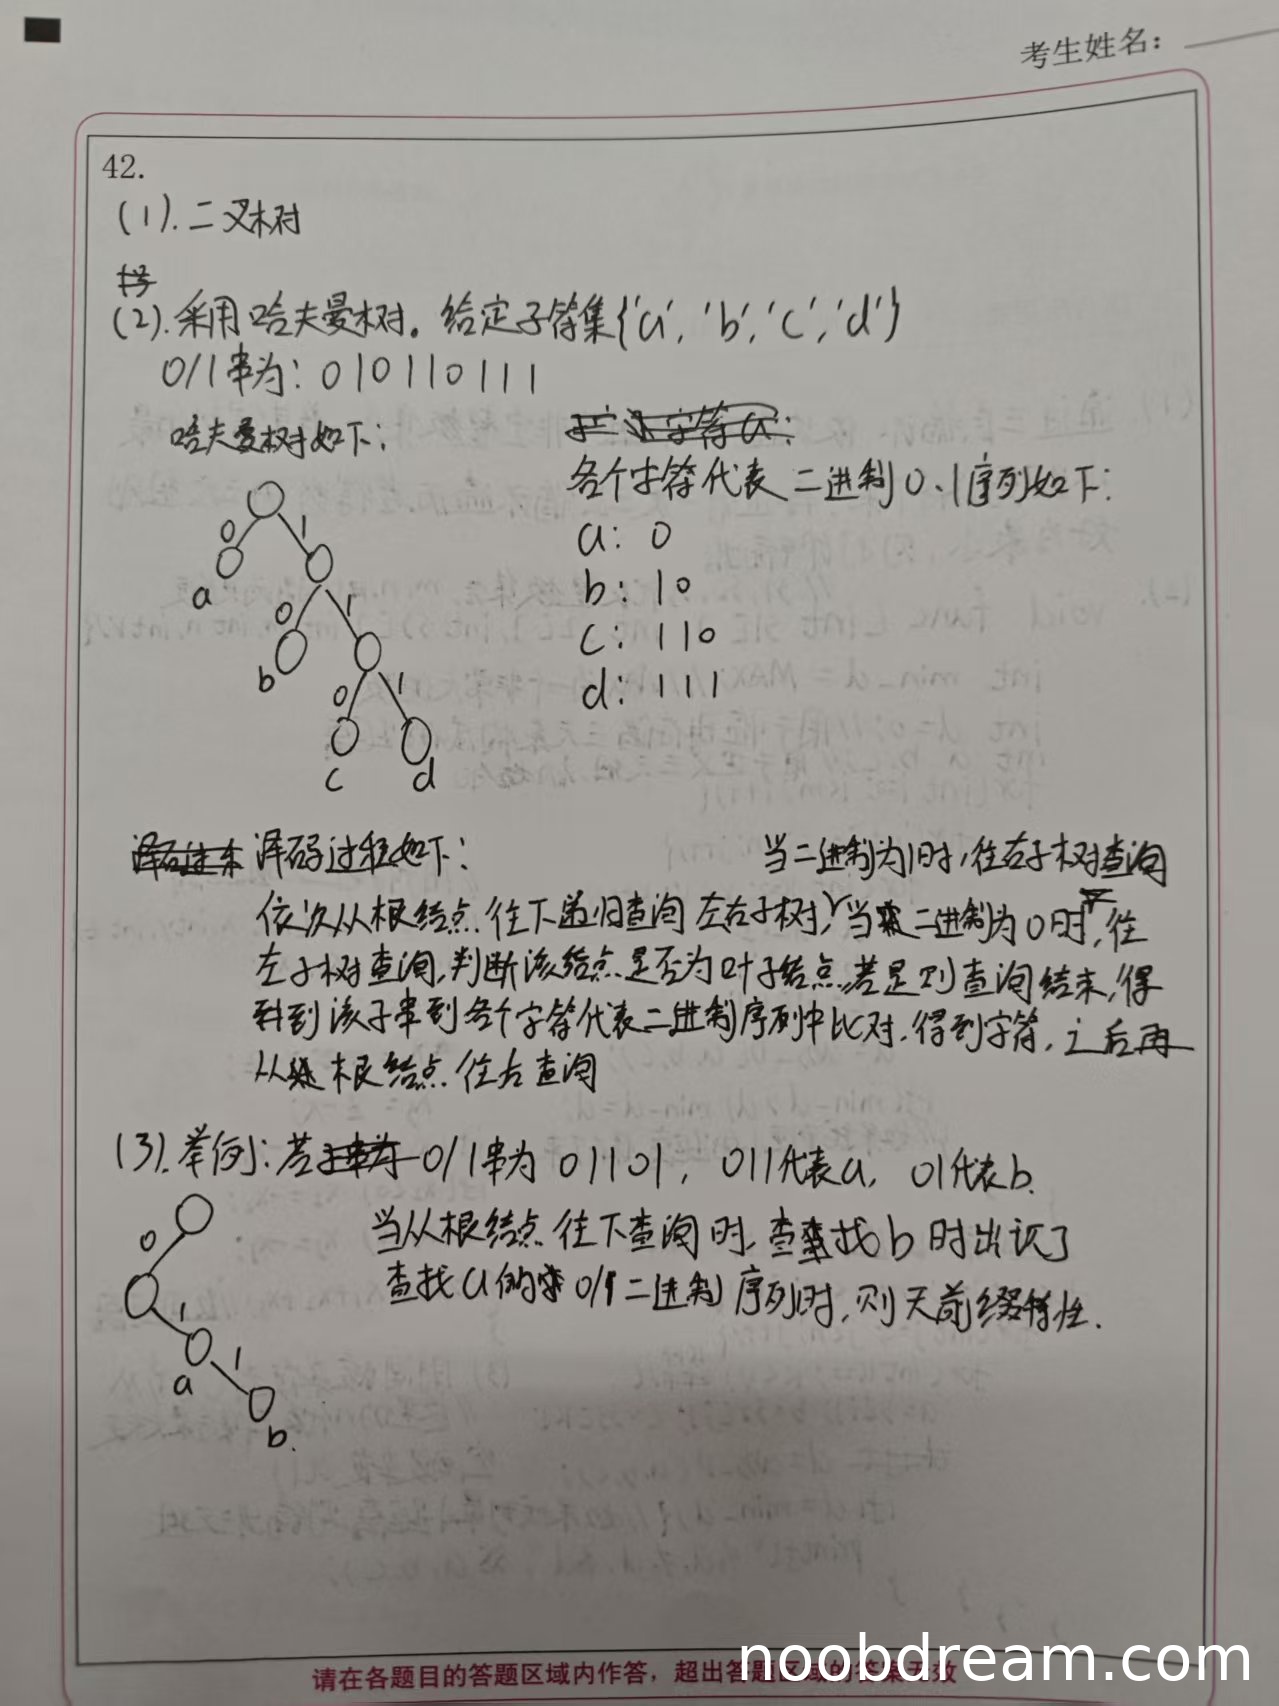 考生姓名：
42.
(1). 二叉树
(2). 采用哈夫曼树。给定子符集{'a', 'b', 'c', 'd'}
0/1串为：010110111
哈夫曼树如下：
各个字符代表二进制0、1序列如下：
a: 0
b: 10
c: 110
d: 111
0
1
a
0
1
b
0
1
c
d
译码过程如下：
当二进制为1时，往右子树查询
依次从根结点往下递归查询左右子树，当二进制为0时，往
左子树查询，判断该结点是否为叶子结点，若是则查询结束，得
到该子串到各个字符代表二进制序列中比对，得到字符，之后再
从根结点往右查询
(3). 举例：若0/1串为 01101，011代表a，01代表b.
当从根结点往下查询时，查找b时出识了
查找a的0/1二进制序列时，则无前缀特性.
0
1
a
1
b.
请在各题目的答题区域内作答，超出答题区域的答案无效
noobdream.com